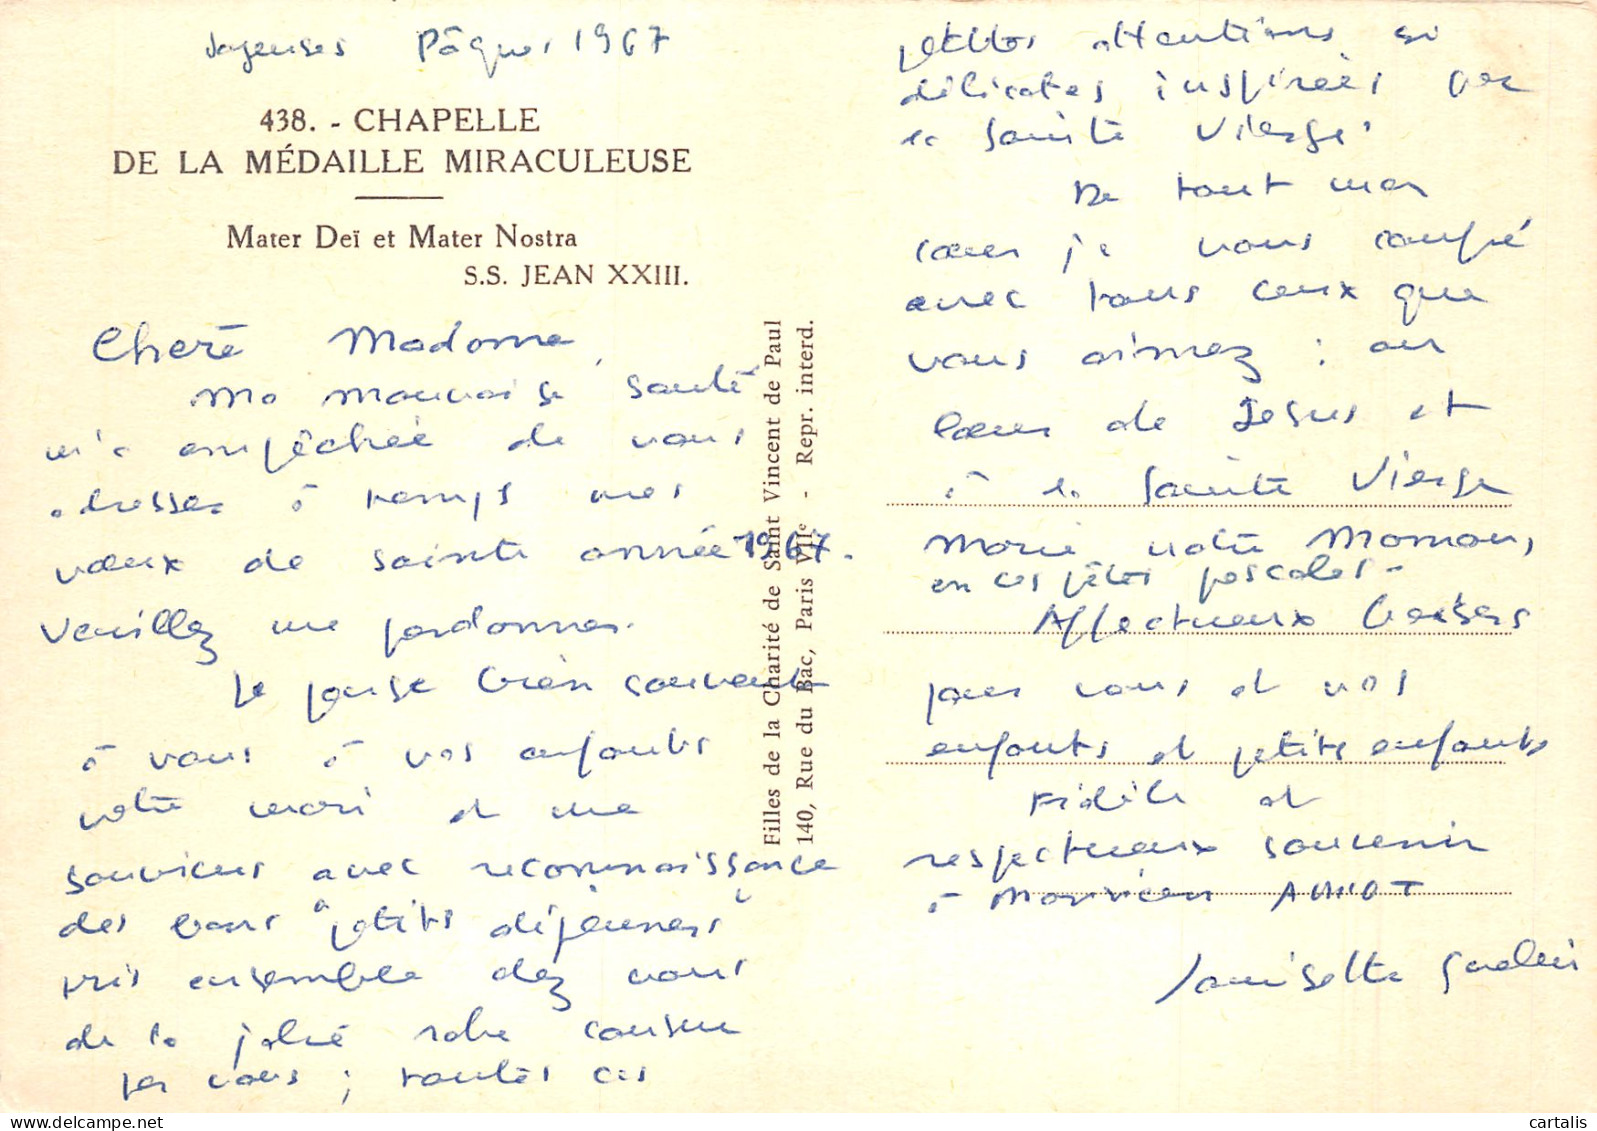 Joyeuses Pâques 1967
438. - CHAPELLE
DE LA MÉDAILLE MIRACULEUSE
Mater Deï et Mater Nostra
S.S. JEAN XXIII.
Chère Madame,
Ma mauvaise santé
m'a empêchée de vous
adresser à temps mes
vœux de sainte année 1967.
Veuillez me pardonner.
Je pense bien souvent
à vous à vos enfants
votre mari et me
souviens avec reconnaissance
des bons "petits déjeuners"
pris ensemble chez vous
de la jolie robe cousue
par vous ; toutes ces
Filles de la Charité de Saint Vincent de Paul
140, Rue du Bac, Paris VIIe - Repr. interd.
petites attentions si
délicates inspirées par
la Sainte Vierge.
De tout mon
cœur je vous confie
avec tous ceux que
vous aimez : au
Cœur de Jésus et
à la Sainte Vierge
Marie notre Maman,
en ces fêtes pascales.
Affectueux baisers
pour vous et vos
enfants et petits enfants
Fidèle et
respectueux souvenir
à Monsieur AMIOT
Louisette
cartalis